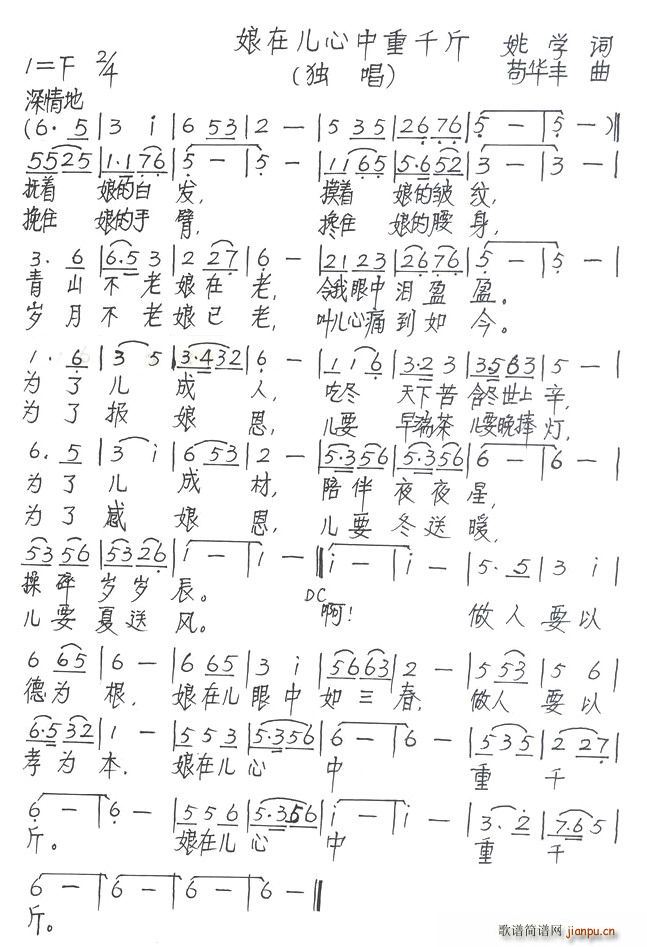 娘在儿心中重千斤 姚学词
1=F 2/4 (独唱) 苟华丰 曲
深情地
(6. 5 | 3 i | 6 53 | 2 — | 5 35 | 26 76 | 5 — | 5 — )‖
5525 | 1·176 | 5 — | 5 — | 1165 | 5·652 | 3 — | 3 — |
抚着 娘的白发, 摸着 娘的皱纹,
挽住 娘的手臂, 搀住 娘的腰身,
3. 6 | 6·5 3 | 2 27 | 6 — | 21 23 | 26 76 | 5 — | 5 — |
青山不老娘在老, 含我眼中泪盈盈。
岁月不老娘已老, 叫儿心痛到如今。
1. 6 | 3 5 | 3·432 | 6 — | 11 6 | 3·2 3 | 3563 | 5 — |
为了儿成人, 吃冬 天下苦 含冬世上辛,
为了报娘恩, 儿要 早端茶 儿要晚捧灯,
6. 5 | 3 i | 6 53 | 2 — | 5·356 | 5·356 | 6 — | 6 — |
为了儿成材, 陪伴夜夜星,
为了感娘恩, 儿要冬送暖,
53 56 | 53 26 | i — | i — ‖ i — | i — | 5. 5 | 3 i |
操碎岁岁辰。 DC 啊! 做人要以
儿要夏送风。
6 65 | 6 — | 6 65 | 3 i | 5663 | 2 — | 5 53 | 5 6 |
德为根, 娘在儿眼中如三春, 做人要以
6·532 | 1 — | 55 3 | 5·356 | 6 — | 6 — | 53 5 | 2 27 |
孝为本. 娘在儿心中重千
6 — | 6 — | 55 6 | 5·356 | i — | i — | 3. 2 | 7·6 5 |
斤。 娘在儿心中重千
6 — | 6 — | 6 — | 6 — ‖
斤。
歌谱简谱网
jianpu.cn